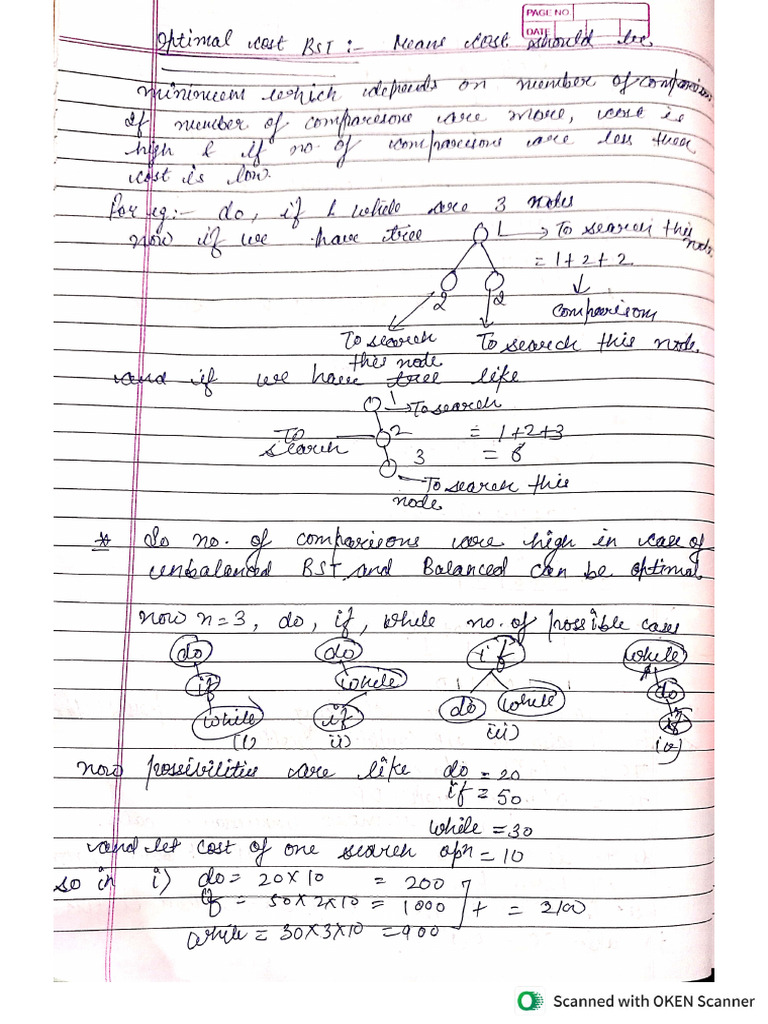 PAGE NO
DATE
Optimal cost BST :- Means cost should be
minimum which depends on number of comparison.
If number of comparisons are more, cost is
high & if no. of comparisons are less then
cost is low.
For eg:- do, if & while are 3 nodes
now if we have tree
1 → To search this node.
= 1 + 2 + 2
comparisons
2 2
To search this node To search this node.
and if we have tree like
1 → To search
To search 2 = 1+2+3
3 = 6
To search this node
* So no. of comparisons are high in case of
unbalanced BST and Balanced can be optimal
now n=3, do, if, while no. of possible cases
do do if while
if while do while do
while if if
(i) ii) iii) iv)
now possibilities are like do = 20
if = 50
while = 30
and let cost of one search opn = 10
so in i) do = 20 X 10 = 200
if = 50 X 2 X 10 = 1000 + = 2100
while = 30 X 3 X 10 = 900
Scanned with OKEN Scanner